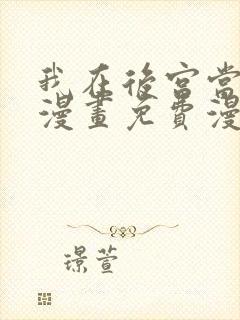 我在後宮當
漫畫免費漫
璟萱